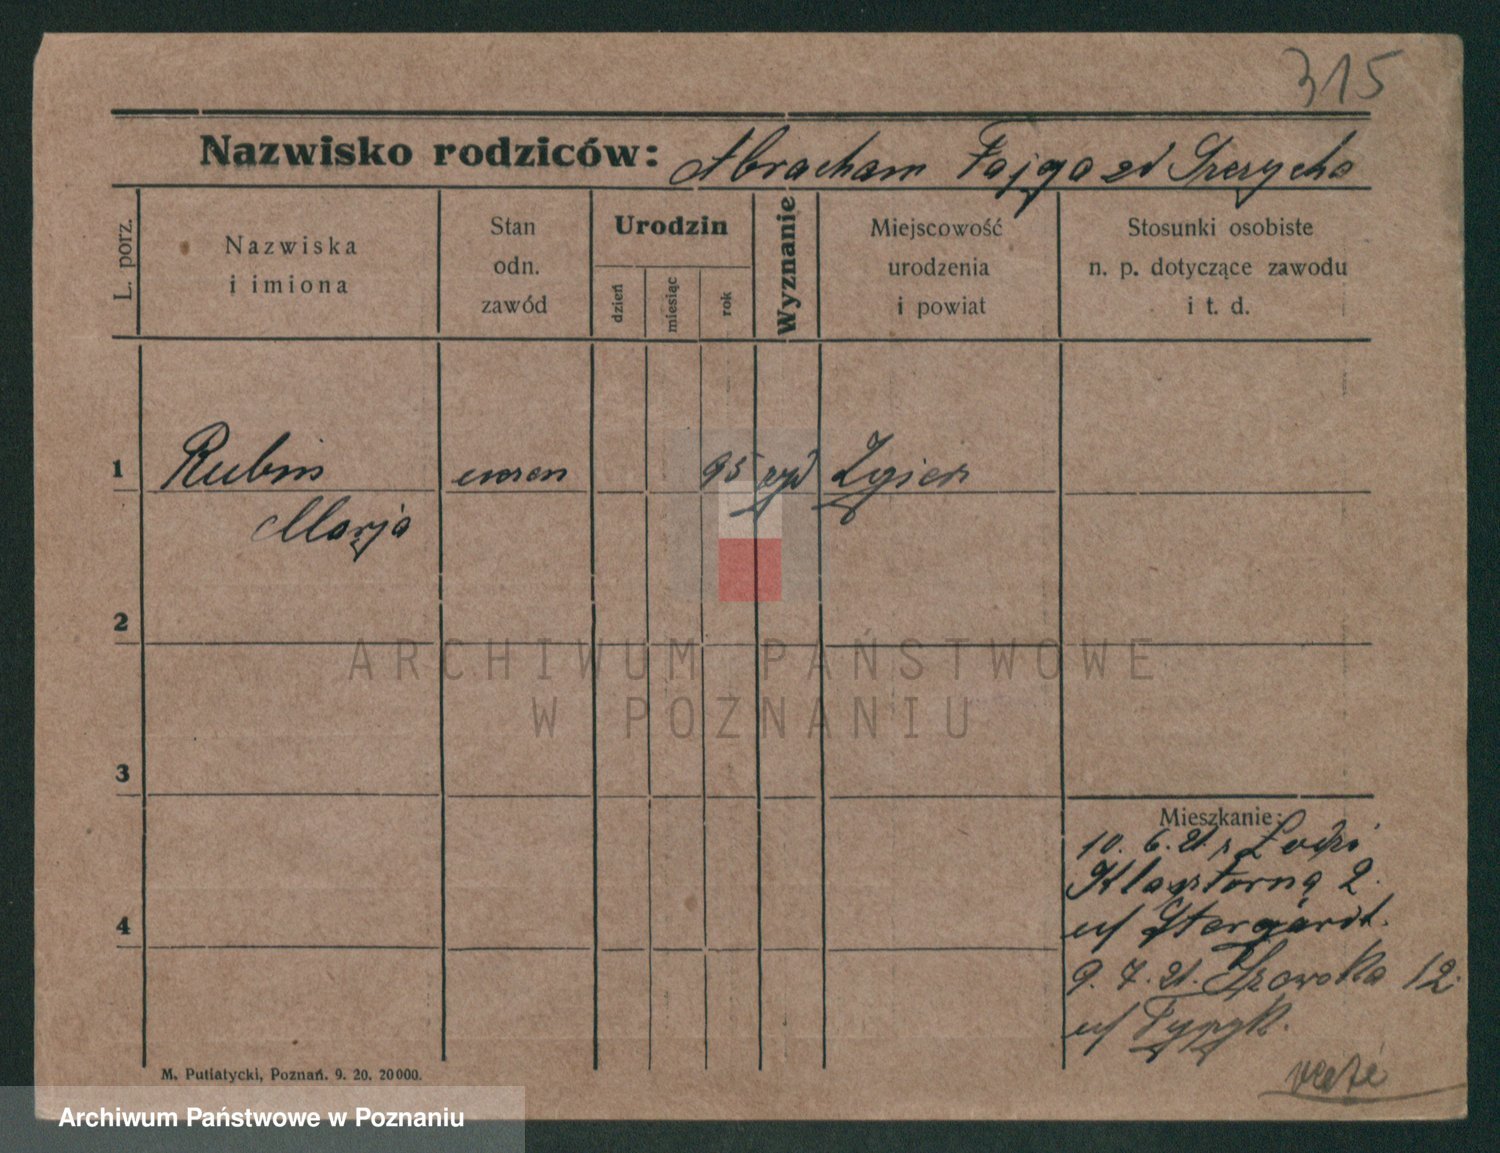 315
Nazwisko rodziców: Abracham Fajga zd
L. porz.
Nazwiska
i imiona
Stan
odn.
zawód
Urodzin
dzień
miesiąc
rok
Wyznanie
Miejscowość
urodzenia
i powiat
Stosunki osobiste
n. p. dotyczące zawodu
i t. d.
1 Rubin 95 żyd Zgierz
Marja
2
ARCHIWUM PAŃSTWOWE
W POZNANIU
3
Mieszkanie:
10. 6. 21 z Łodzi
Klasztorna 2.
u/ Stargardt.
4
9. 7. 21. 12.
u/
M. Putiatycki, Poznań. 9. 20. 20000.
Archiwum Państwowe w Poznaniu